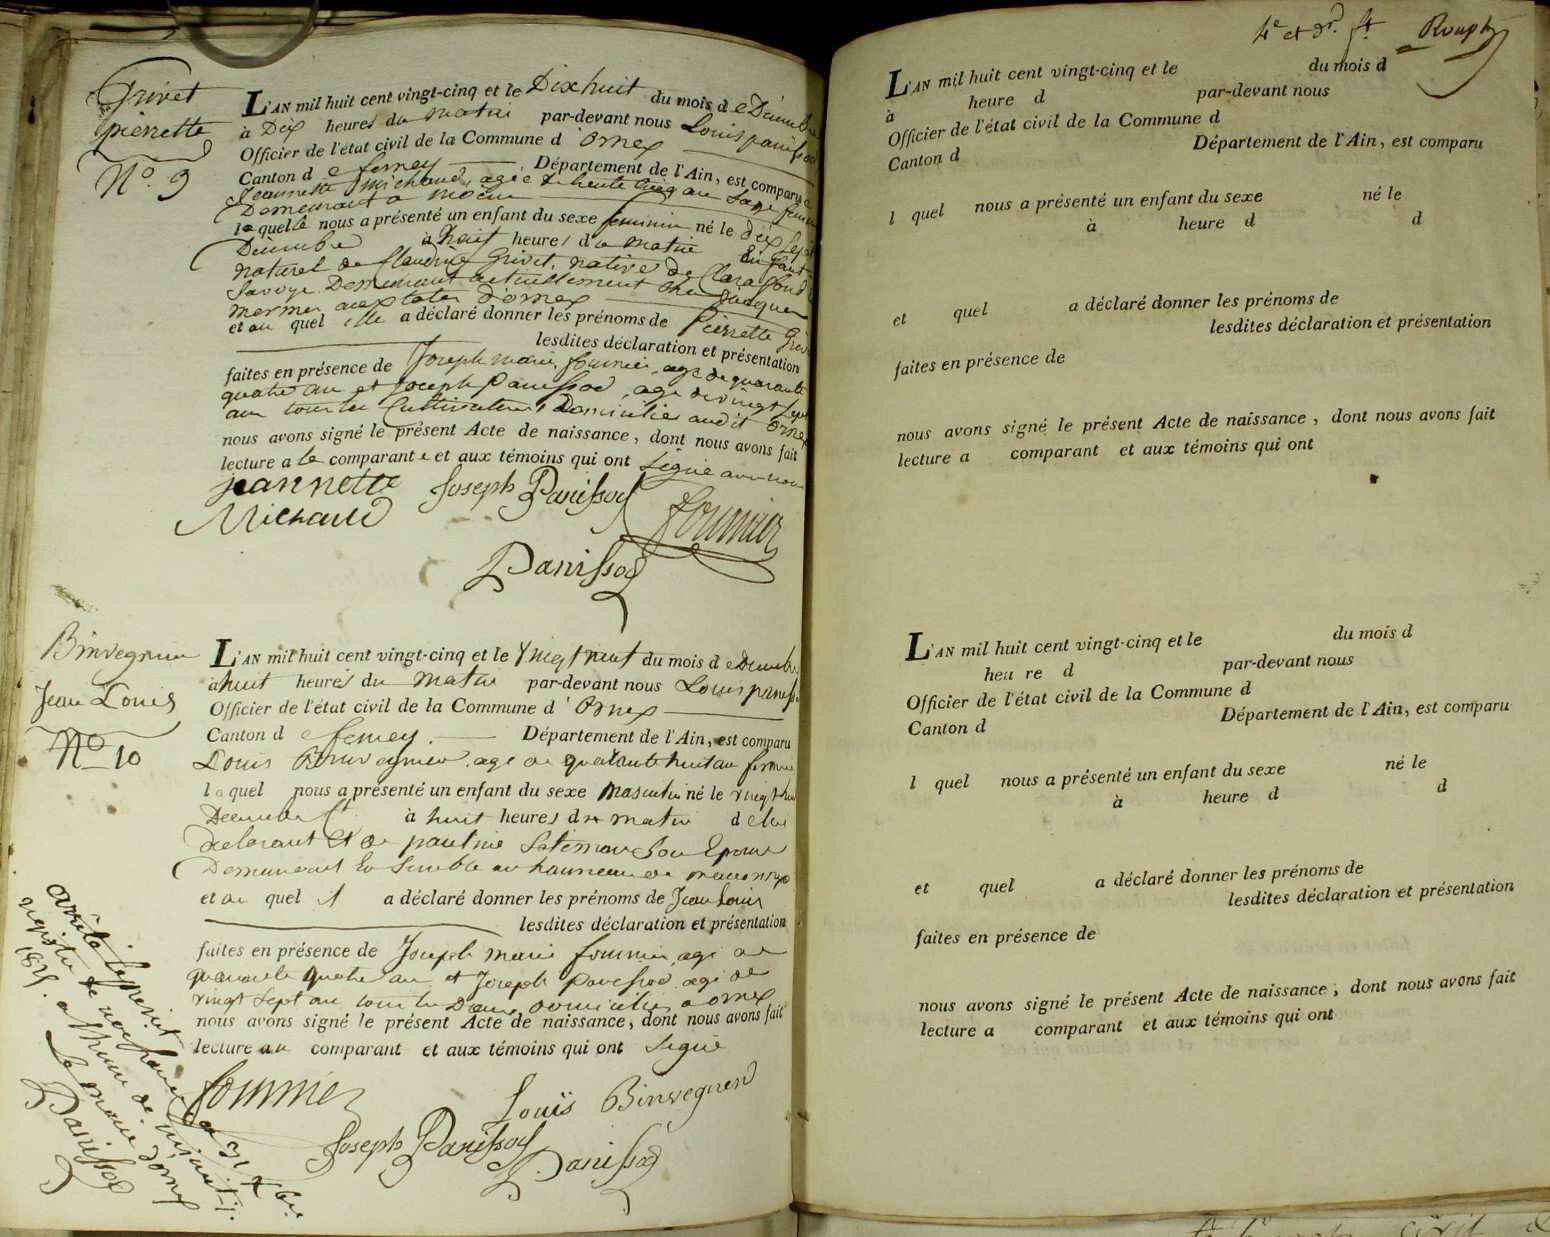 Grivet
pierrette
N.o 9
L'AN mil huit cent vingt-cinq et le Dix huit du mois d e Décembre
à Dix heures du matin par-devant nous Louis panissod
Officier de l'état civil de la Commune d'Ornex
Canton d e ferney Département de l'Ain, est comparu e
Jeannette Michaud, agée de trente cinq an Sage femme
Demeurant a moëns
laquelle nous a présenté un enfant du sexe feminin né le dix Sept
Décembre à huit heures du matin Enfant
naturel de Claudine Grivet, native de Clarafond
Savoye Demeurant actuellement chez Jacques
mermen
et au quel elle a déclaré donner les prénoms de Pierrette Grivet
lesdites déclaration et présentation
faites en présence de Joseph marie fournier, age de quarante
quatre an et Joseph Panissod, age de vingt Sept
an tous les Cultivateurs Domicilies audit Ornex
nous avons signé le présent Acte de naissance, dont nous avons fait
lecture a la comparante et aux témoins qui ont Signé avec nous
jeannette Joseph Panissod fournier
Michaud
Panissod
Binvegnen
Jean Louis
No 10
L'AN mil huit cent vingt-cinq et le Vingt neuf du mois d e Décembre
à huit heures du matin par-devant nous Louis panissod
Officier de l'état civil de la Commune d'Ornex
Canton d e ferney. Département de l'Ain, est comparu
Louis Binvegnen, age de quarante huit an fermier
l a quel nous a présenté un enfant du sexe masculin né le vingt huit
Décembre Ct à huit heures du matin d e lui
declarant Et de pauline Son Epouse
Demeurant Ensemble au hameau de maconnex
et au quel il a déclaré donner les prénoms de Jean Louis
lesdites déclaration et présentation
faites en présence de Joseph marie fournier, agé de
quarante quatre an et Joseph Panissod, agé de
vingt Sept an tous les Deux domicilies a ornex
nous avons signé le présent Acte de naissance, dont nous avons fait
lecture au comparant et aux témoins qui ont Signé
fournier Louis Binvegnen
Joseph Panissod Panissod
arrêté le présent
registre de
1825. a
Le maire d'ornex
Panissod
4e et dr. ft. Rouph
L'AN mil huit cent vingt-cinq et le du mois d
à heure d par-devant nous
Officier de l'état civil de la Commune d
Canton d Département de l'Ain, est comparu
l quel nous a présenté un enfant du sexe né le
à heure d d
et quel a déclaré donner les prénoms de
lesdites déclaration et présentation
faites en présence de
nous avons signé le présent Acte de naissance, dont nous avons fait
lecture a comparant et aux témoins qui ont
L'AN mil huit cent vingt-cinq et le du mois d
heu re d par-devant nous
Officier de l'état civil de la Commune d
Canton d Département de l'Ain, est comparu
l quel nous a présenté un enfant du sexe né le
à heure d d
et quel a déclaré donner les prénoms de
lesdites déclaration et présentation
faites en présence de
nous avons signé le présent Acte de naissance, dont nous avons fait
lecture a comparant et aux témoins qui ont